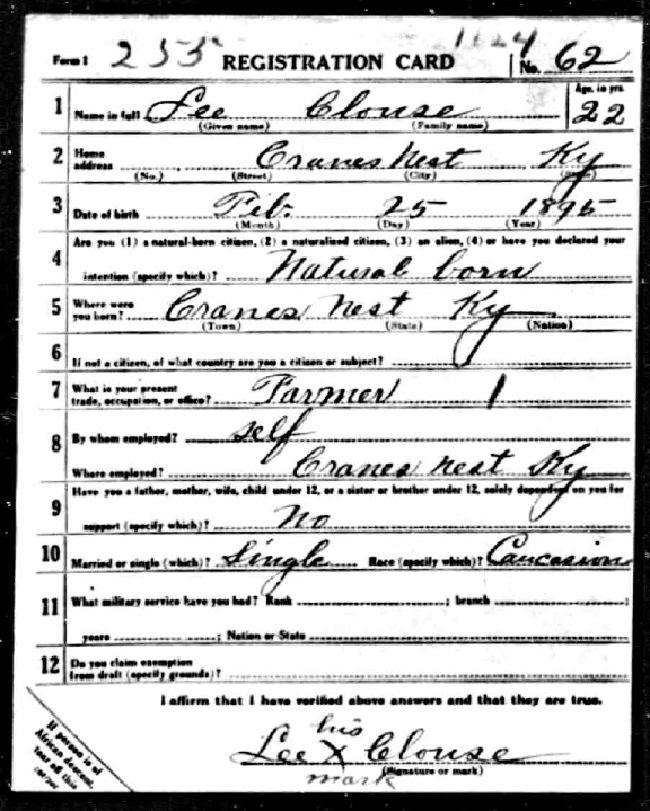 Form 1 255 REGISTRATION CARD 1124 No. 62
1 Name in full Lee Clouse Age, in yrs. 22
(Given name) (Family name)
2 Home address Cranes Nest Ky
(No.) (Street) (City)
3 Date of birth Feb. 25 1895
(Month) (Day) (Year)
4 Are you (1) a natural-born citizen, (2) a naturalized citizen, (3) an alien, (4) or have you declared your
intention (specify which)? Natural born
5 Where were you born? Cranes Nest Ky
(Town) (State) (Nation)
6 If not a citizen, of what country are you a citizen or subject?
7 What is your present trade, occupation, or office? Farmer 1
8 By whom employed? self
Where employed? Cranes nest Ky
9 Have you a father, mother, wife, child under 12, or a sister or brother under 12, solely dependent on you for
support (specify which)? No
10 Married or single (which)? Single Race (specify which)? Caucasion
11 What military service have you had? Rank ; branch ;
years ; Nation or State
12 Do you claim exemption from draft (specify grounds)?
I affirm that I have verified above answers and that they are true.
his
Lee X Clouse
(Signature or mark)
mark
If person is of
African descent,
tear off this
corner